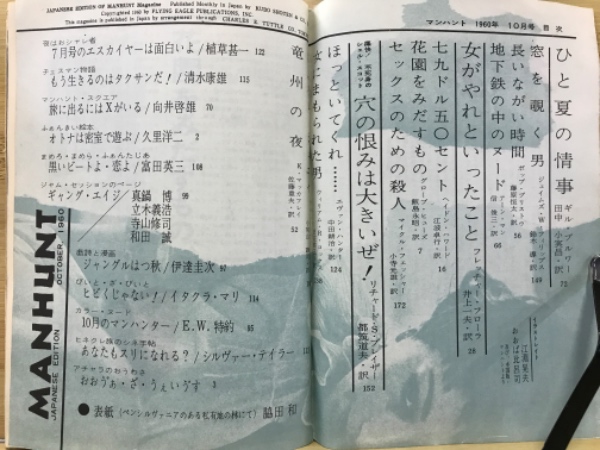 JAPANESE EDITION OF MANHUNT Magazine
Published Monthly in Japan by
The magazine is published in Japan by arrangement through CHARLES E. TUTTLE CO.
Copyright 1960 by FLYING EAGLE PUBLICATIONS, INC.
マンハント 1960年 10月号 目次
ひと夏の情事
ギル・ブルワー
田中小実昌・訳 72
窓を覗く男
ジェイムズ・W・フィリップス
149
長いながい時間
藤原恒太・訳 56
地下鉄の中のヌード
信俊三・訳 66
女がやれといったこと
フレッチャー・フローラ
井上一夫・訳 28
七九ドル五〇セント
ヘイドン・ハワード
江波卓行・訳 16
花園をみだすもの
グローブ・ヒューズ
鮫島永明・訳 7
セックスのための殺人
マイクル・フィッシャー
小寺光雄・訳 172
穴の恨みは大きいぜ!
リチャード・S・プレイザー
都筑道夫・訳 152
ほっといてくれ……
エヴァン・ハンター
中田耕治・訳 124
女にまもられた男
竜州の夜
佐藤喜夫・訳 52
夜はおシャレ者
7月号のエスカイヤーは面白いよ/植草甚一 122
チェスマン物語
もう生きるのはタクサンだ!/清水康雄 115
マンハント・スクエア
旅に出るにはXがいる/向井啓雄 70
ふぁんきい絵本
オトナは密室で遊ぶ/久里洋二 2
まめろ・まめら・ふぁんたじあ
黒いビートよ・悲よ/富田英三 108
ジャム・セッションのページ
ギャング・エイジ/真鍋 博 99
立木義浩
寺山修司
和田 誠
戯詩と漫画
ジャングルはつ秋/伊達圭次 97
びいと・ざ・びいと
トビくじゃない!/イタクラ・マリ 114
カラー・ヌード
10月のマンハンター/E.W.特約 85
ヒネクレ旅のシネ手帖
あなたもスリになれる?/シルヴァー・テイラー
アチャラのおうわさ
おおうぁ・ざ・うぇいゔす 3
●表紙(ペンシルヴァニアのある私有地の柵にて)脇田 和
MANHUNT
JAPANESE EDITION OCTOBER, 1960
江湖晃夫
おおば比呂司